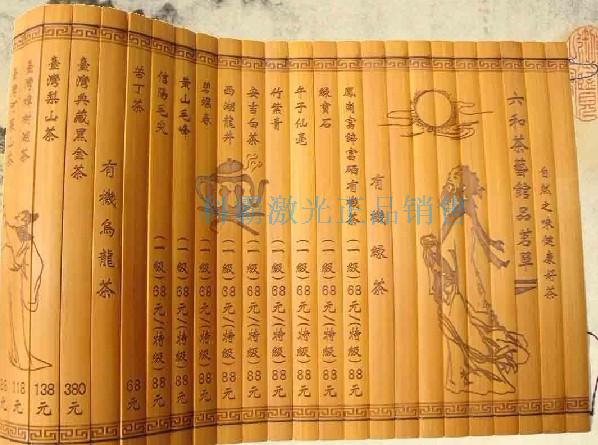 自然之味健康好茶
六和茶藝館品茗單
有機緑茶
鳳崗富鋅富硒有機茶 (一級)68元/(特級)88元
緑寳石 (一級)68元/(特級)88元
午子仙毫 (一級)68元/(特級)88元
竹葉青 (一級)68元/(特級)88元
安吉白茶 (一級)68元/(特級)88元
西湖龍井 (一級)68元/(特級)88元
碧螺春 (一級)68元/(特級)88元
黄山毛峰 (一級)68元/(特級)88元
信陽毛尖 (一級)68元/(特級)88元
苦丁茶 68元
有機烏龍茶
臺灣典藏黑金茶 380元
臺灣梨山茶 138元
臺灣樟樹湖茶 118元
臺灣 茶 元
科霸激光正品销售